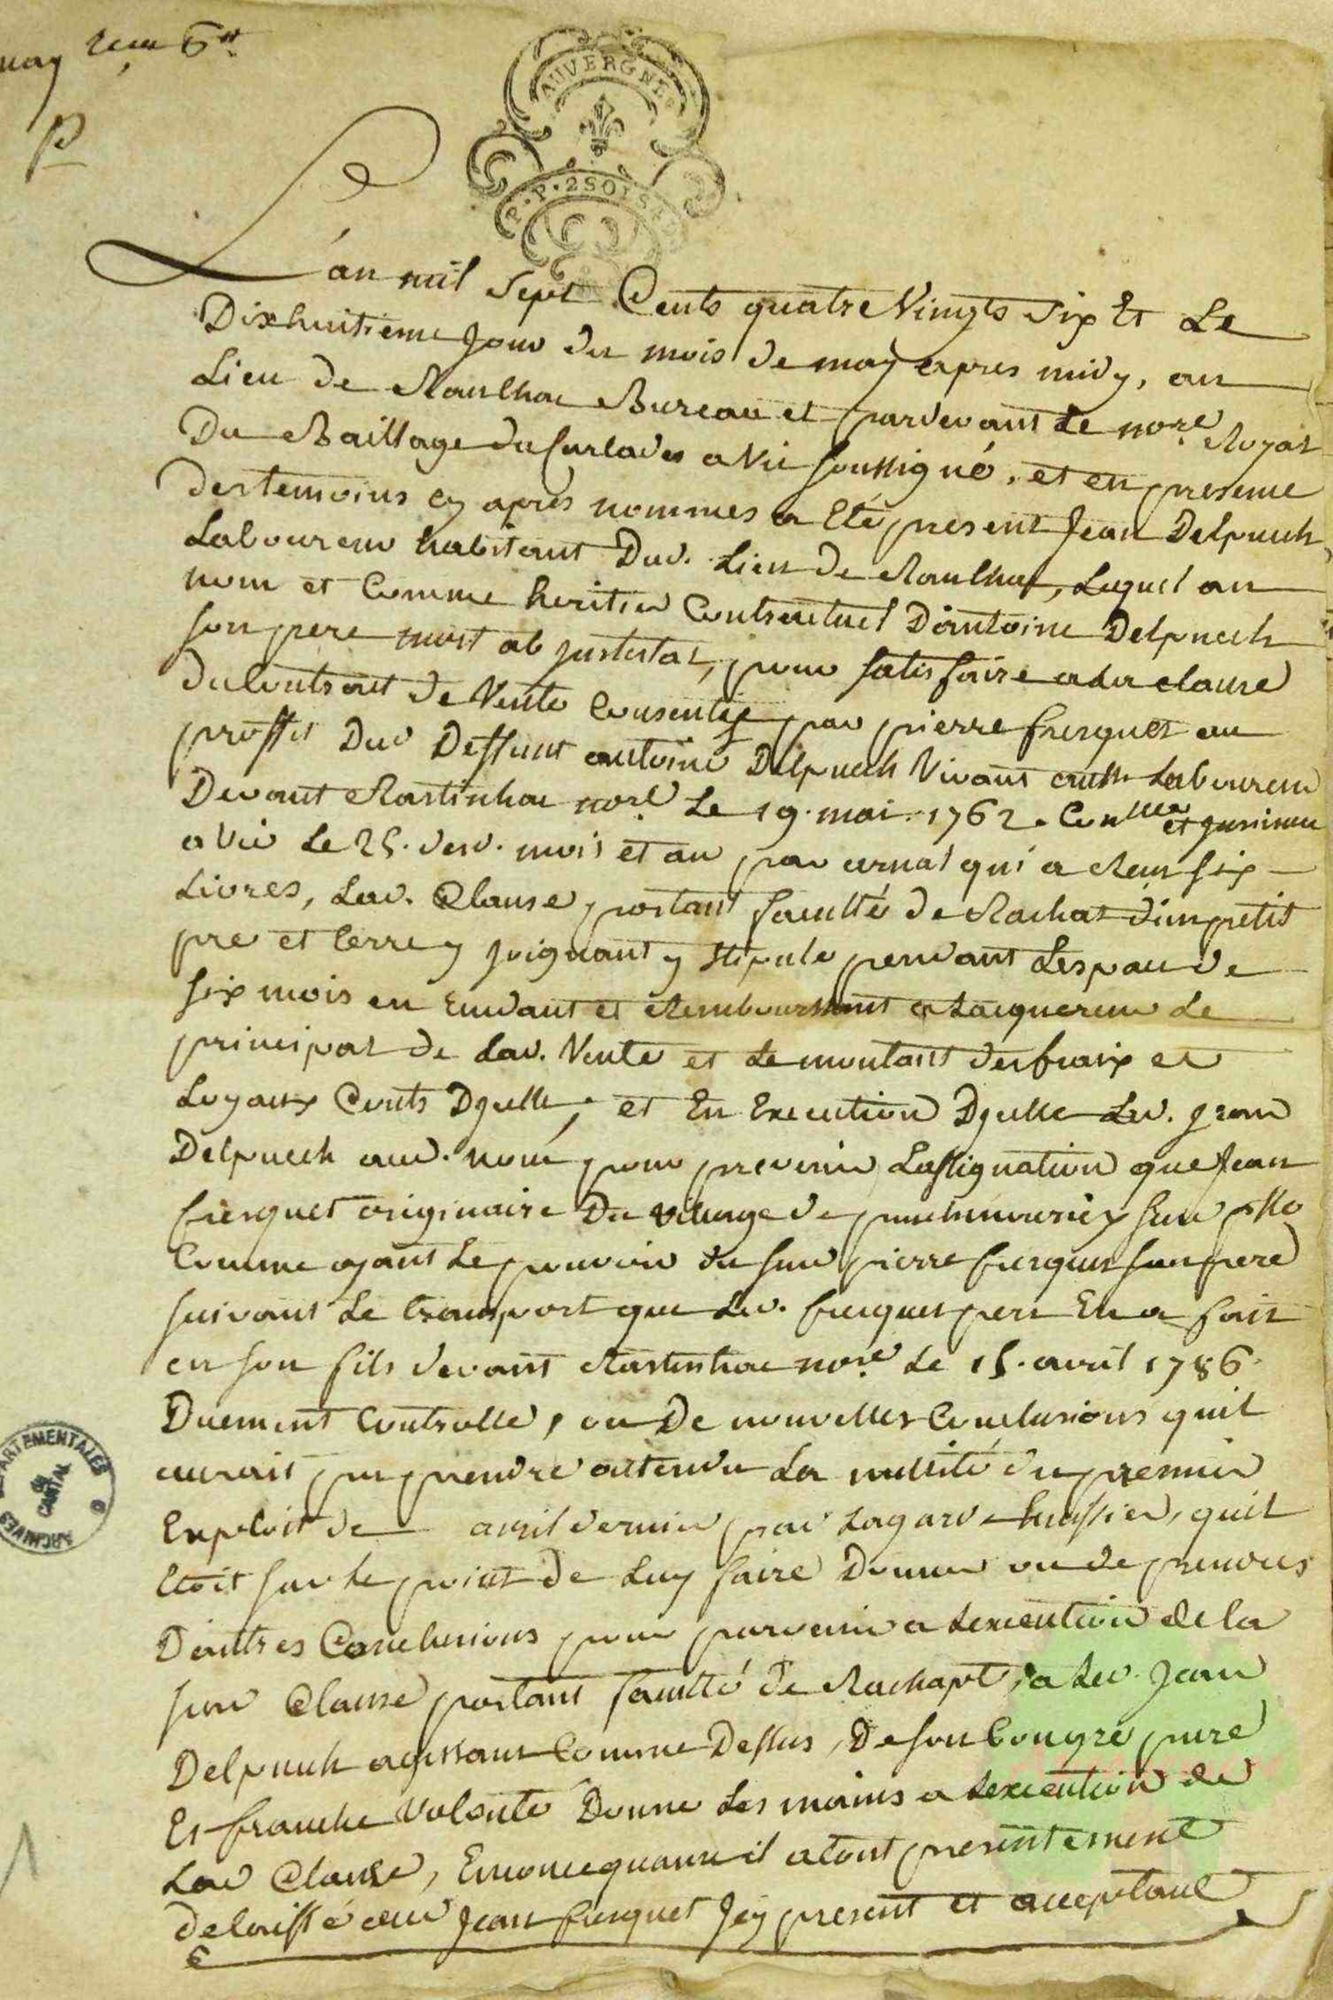 may
AUVERGNE
P.P. 2 SOLS 4
L'an mil sept Cents quatre Vingts six Et Le
Dixhuitieme Jour du mois de may apres midy, au
Lieu de Raulhac Bureau et pardevant Le no.re Royal
Du Baillage du Carlades a Vic soussigné, et en presence
des temoins cy apres nommes a Eté present Jean Delpuech
Laboureur habitant Dud. Lieu de Raulhac, Lequel au
nom et Comme heritier Contractuel D'antoine Delpuech
son pere mort ab intestat, pour satisfaire a la clause
du Contract de Vente Consentie par pierre fresquet au
proffit Dud Deffunt antoine Delpuech Vivant aussi Laboureur
Devant Rastinhac no.re Le 19. mai. 1762. Con.llé et insinué
a Vic Le 25. desd. mois et an par arnal qui a Reçu six
Livres, Lad. Clause, portant faculté de Rachat d'un petit
pre et terre y joignant y stipulé pendant Lespace de
six mois en Rendant et Remboursant a Lacquereur Le
principal de Lad. Vente et Le montant des fraix et
Loyaux Couts D'jcelle, et En Execution D'jcelle Led. jean
Delpuech aud. nom, pour prevenir Lassignation que Jean
fresquet originaire Du village de
Comme ayant Le pouvoir du sieur pierre fresquet son pere
suivant Le transport que Led. fresquet pere En a fait
en son fils devant Rastinhac no.re Le 15. avril 1786.
Duement Controllé, ou De nouvelles Conclusions quil
auroit pu prendre attendu La nullité du premier
Exploit de avril dernier par Lagarde huissier, quil
Etoit sur Le point de Luy faire Donner ou de prendre
D'autres Conclusions pour parvenir a Lexecution de la
Clause portant faculté de Rachapt, a Led. Jean
Delpuech agissant Comme Dessus, De son bon gré pure
Et franche Volonté Donné Les mains a Lexecution de
Lad Clause, En consequance il a tout presentement
delaissé aud Jean fresquet Jcy present et acceptant
ARCHIVES DEPARTEMENTALES
DU
CANTAL